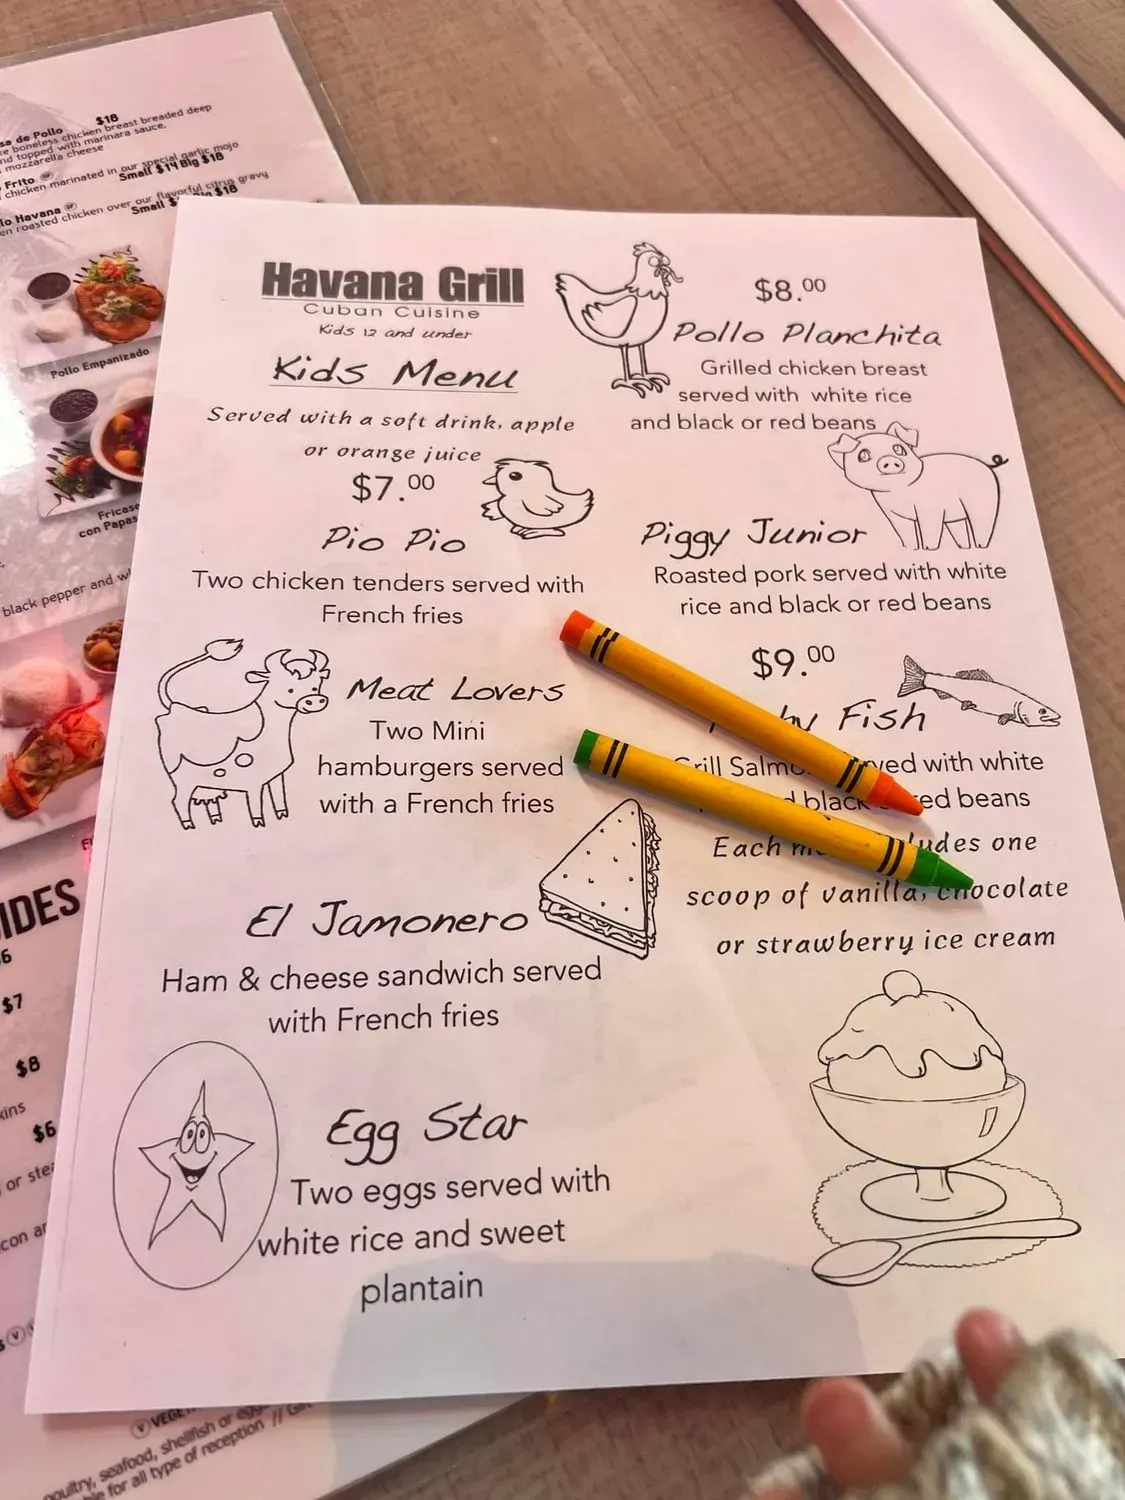 $18
sa de Pollo
boneless chicken breast breaded deep
nd topped with marinara sauce,
mozzarella cheese
Frito
chicken marinated in our special garlic mojo
Small $14 Big $18
lo Havana
en roasted chicken over our flavorful citrus gravy
Small $18
Pollo Empanizado
Fricase
con Papas
black pepper and
IDES
$7
$8
$6
or
poultry, seafood, shellfish or
for all type of reception //
Havana Grill
Cuban Cuisine
Kids 12 and under
Kids Menu
Served with a soft drink, apple
or orange juice
$7.00
Pio Pio
Two chicken tenders served with
French fries
Meat Lovers
Two Mini
hamburgers served
with a French fries
El Jamonero
Ham & cheese sandwich served
with French fries
Egg Star
Two eggs served with
white rice and sweet
plantain
$8.00
Pollo Planchita
Grilled chicken breast
served with white rice
and black or red beans
Piggy Junior
Roasted pork served with white
rice and black or red beans
$9.00
Fish
Grill with white
black red beans
Each one
scoop of vanilla, chocolate
or strawberry ice cream